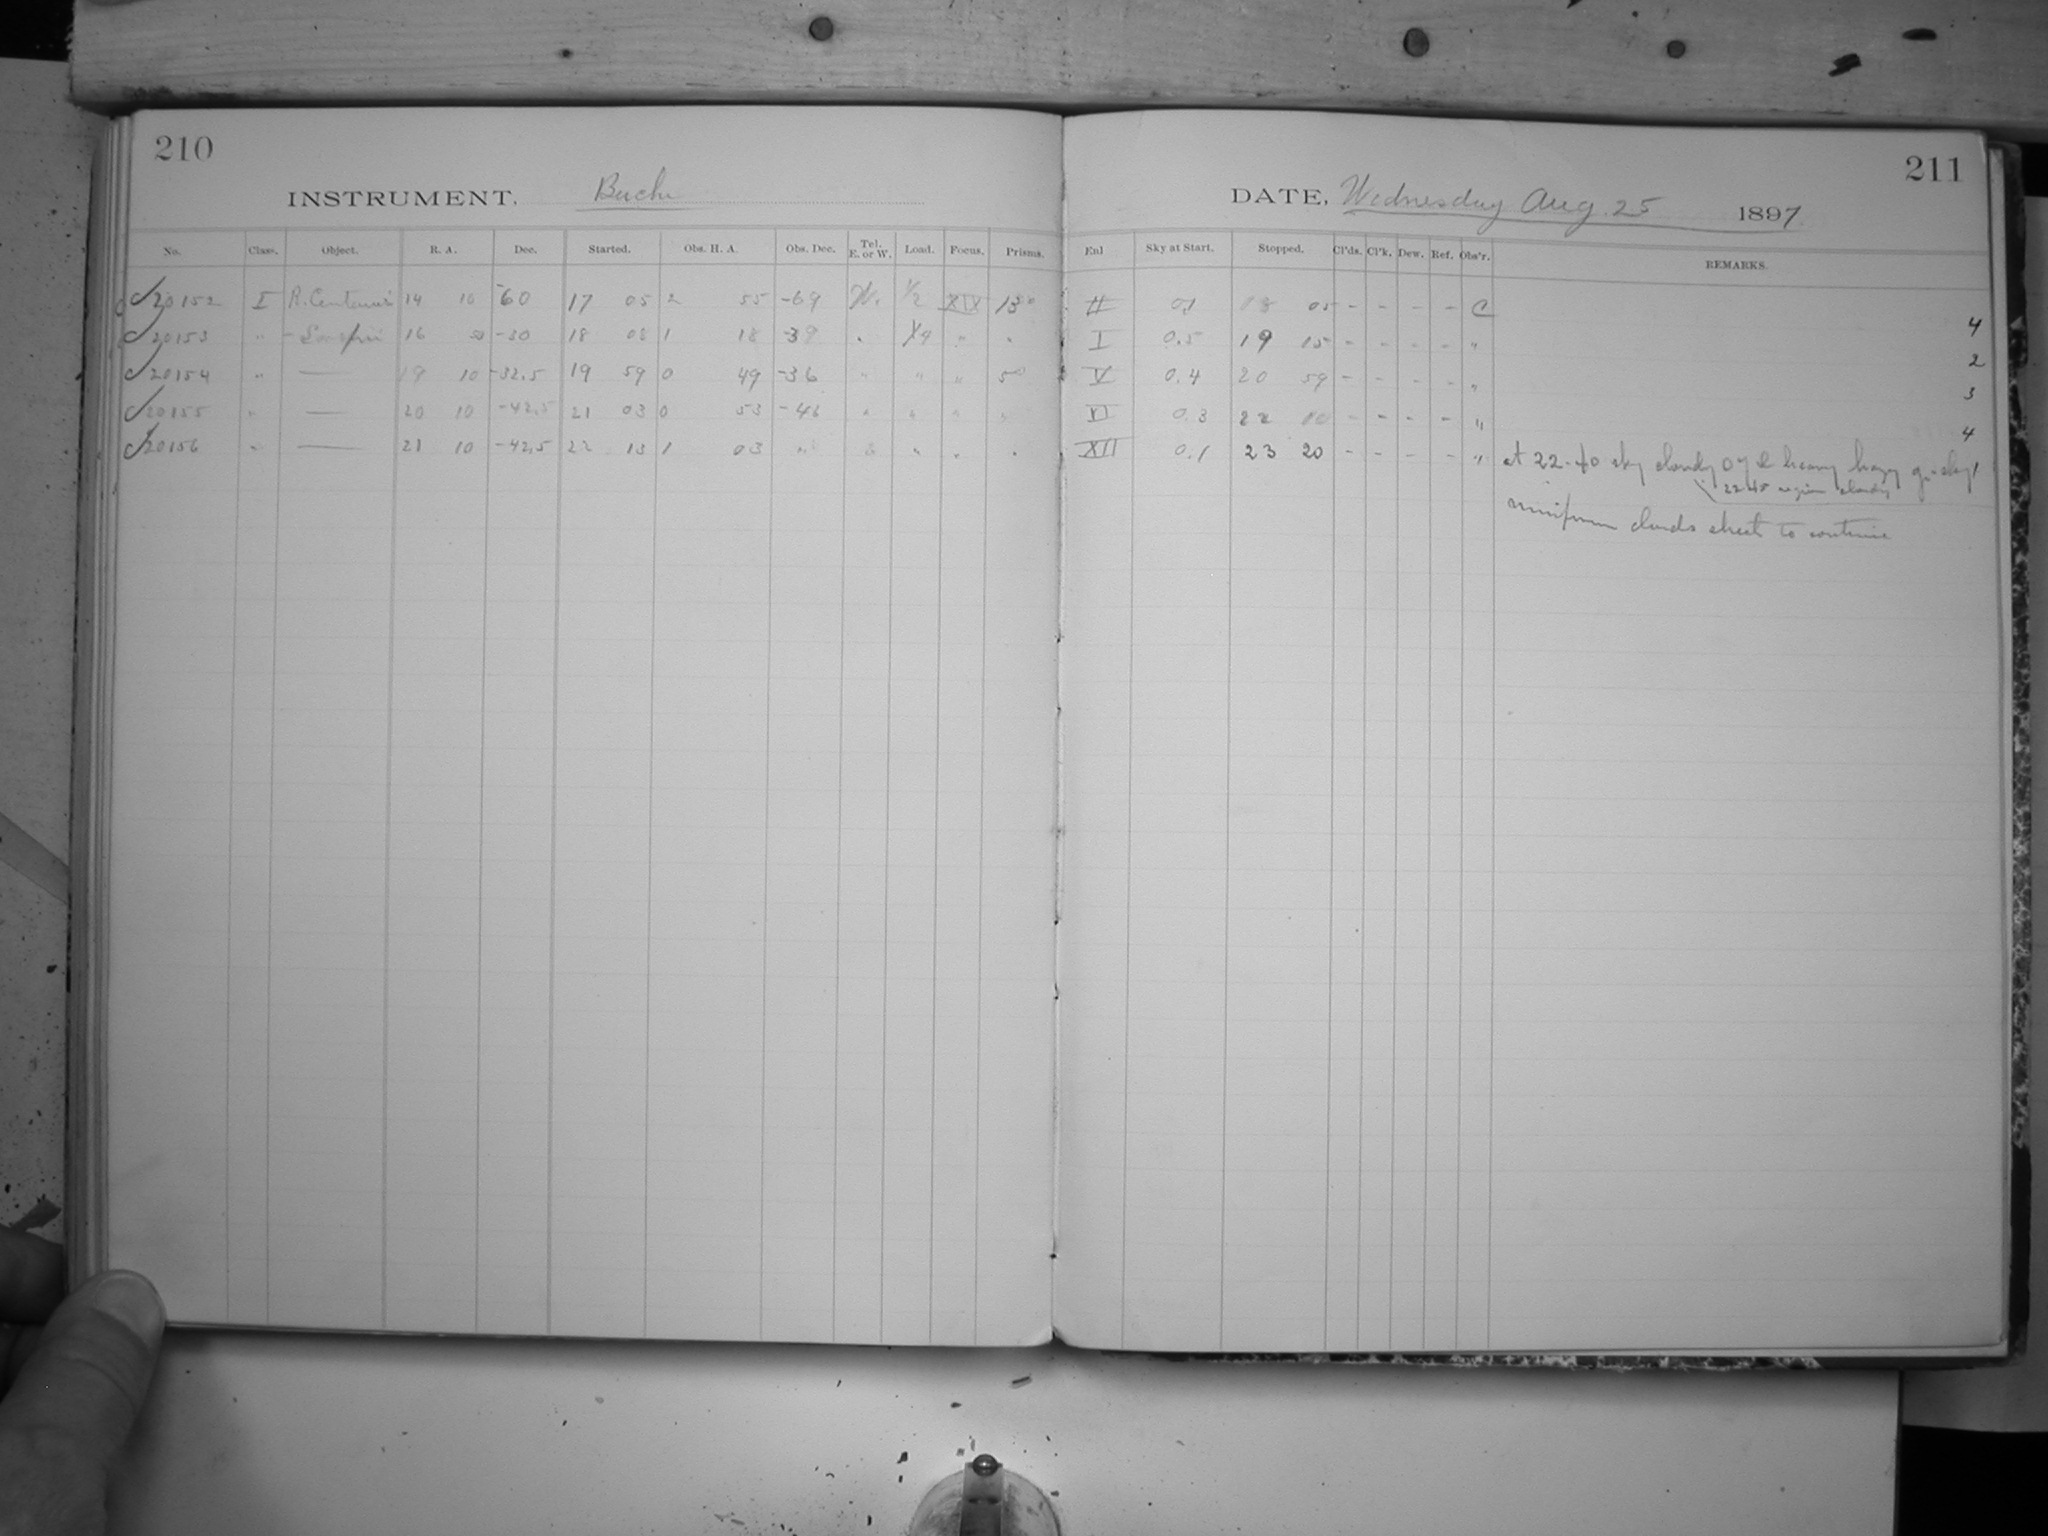 210
INSTRUMENT, Bache
No. Class. Object. R. A. Dec. Started. Obs. H. A. Obs. Dec. Tel. E. or W. Load. Focus. Prisms.
20152 I R. Centauri 14 10 -60 17 05 2 55 -69 W. 1/2 XIX 13°
20153 " 16 50 -30 18 08 1 18 -39 " " "
20154 " — 19 10 -32.5 19 59 0 49 -36 " " " 5°
20155 " — 20 10 -42.5 21 03 0 53 -46 " " " "
20156 " — 21 10 -42.5 22 13 1 03 " " " "
211
DATE, Wednesday Aug. 25 1897
Enl Sky at Start. Stopped. Cl'ds. Cl'k. Dew. Ref. Obs'r. REMARKS.
II 0.1 18 05 - - - - C
4
I 0.5 19 15 - - - - "
2
V 0.4 20 59 - - - - "
3
VI 0.3 22 - - - - "
4
XII 0.1 23 20 - - - - " At 22-40 sky cloudy heavy
22 45 region cloudy
clouds to continue